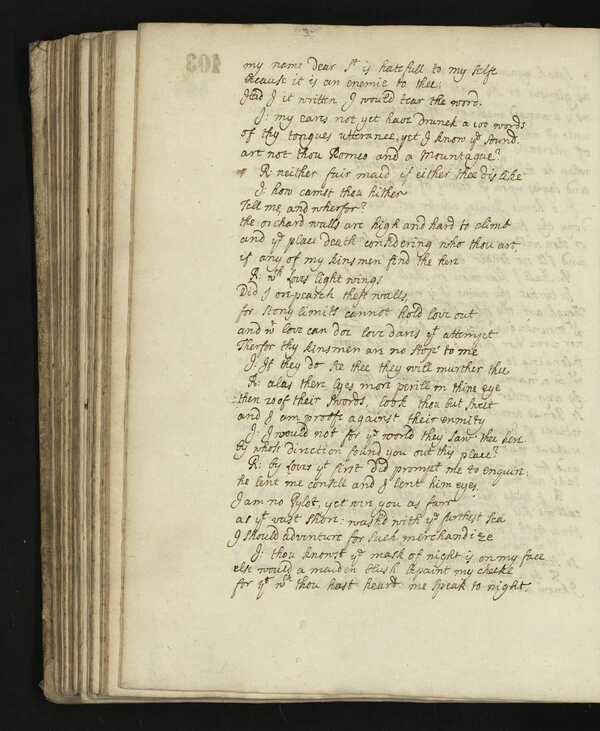 my name dear St is hatefull to my selfe
Because it is an enemie to thee,
Had I it written I would tear the word.
J: my eares not yet have drunck a 100 words
of thy tongues utterance, yet I know ye sound.
art not thou Romeo and a Mountague?
R: neither fair maid if either thee dislike
J: how camst thou hither
Tell me, and wherfor?
the orchard walls are high and hard to climb
and ye place death considering who thou art
if any of my kinsmen find thee here
R: wth loves light wings
Did I orepearch these walls
for stony limits cannot hold love out
and wt love can doe love dares yt attempt
Therfor thy kinsmen are no stop to me
J: If they do see thee they will murther thee
R: alas there lyes more perill in thine eye
then 20 of their swords, look thou but sweet
and I am proofe against their enmity
J: I would not for ye world they saw thee here
by whose direction found you out this place?
R: by Loves yt first did prompt me to enquire:
he lent me consell and I lent him eyes
I am no Pylot, yet wer you as farr
as yt vast shore: washd with ye furthest sea
I should adventure for such merchandize
J: thou knowst ye mask of night is on my face
else would a maiden blush bepaint my cheeke
for yt wch thou hast heard me speak to night.